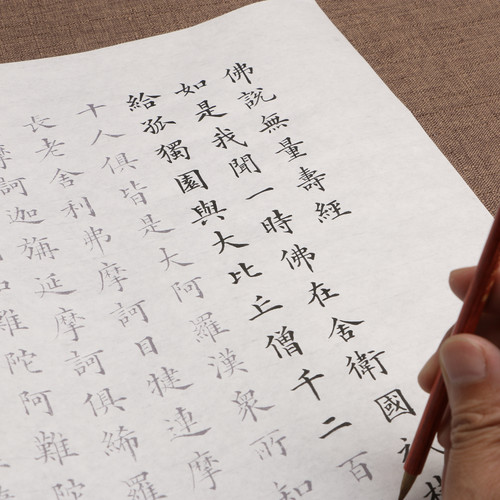 佛說無量壽經
如是我聞一時佛在舍衛國
給孤獨園與大比丘僧千二百
十人俱皆是大阿羅漢眾所知
長老舍利弗摩訶目犍連摩
摩訶迦旃延摩訶俱絺羅
難陀阿難陀